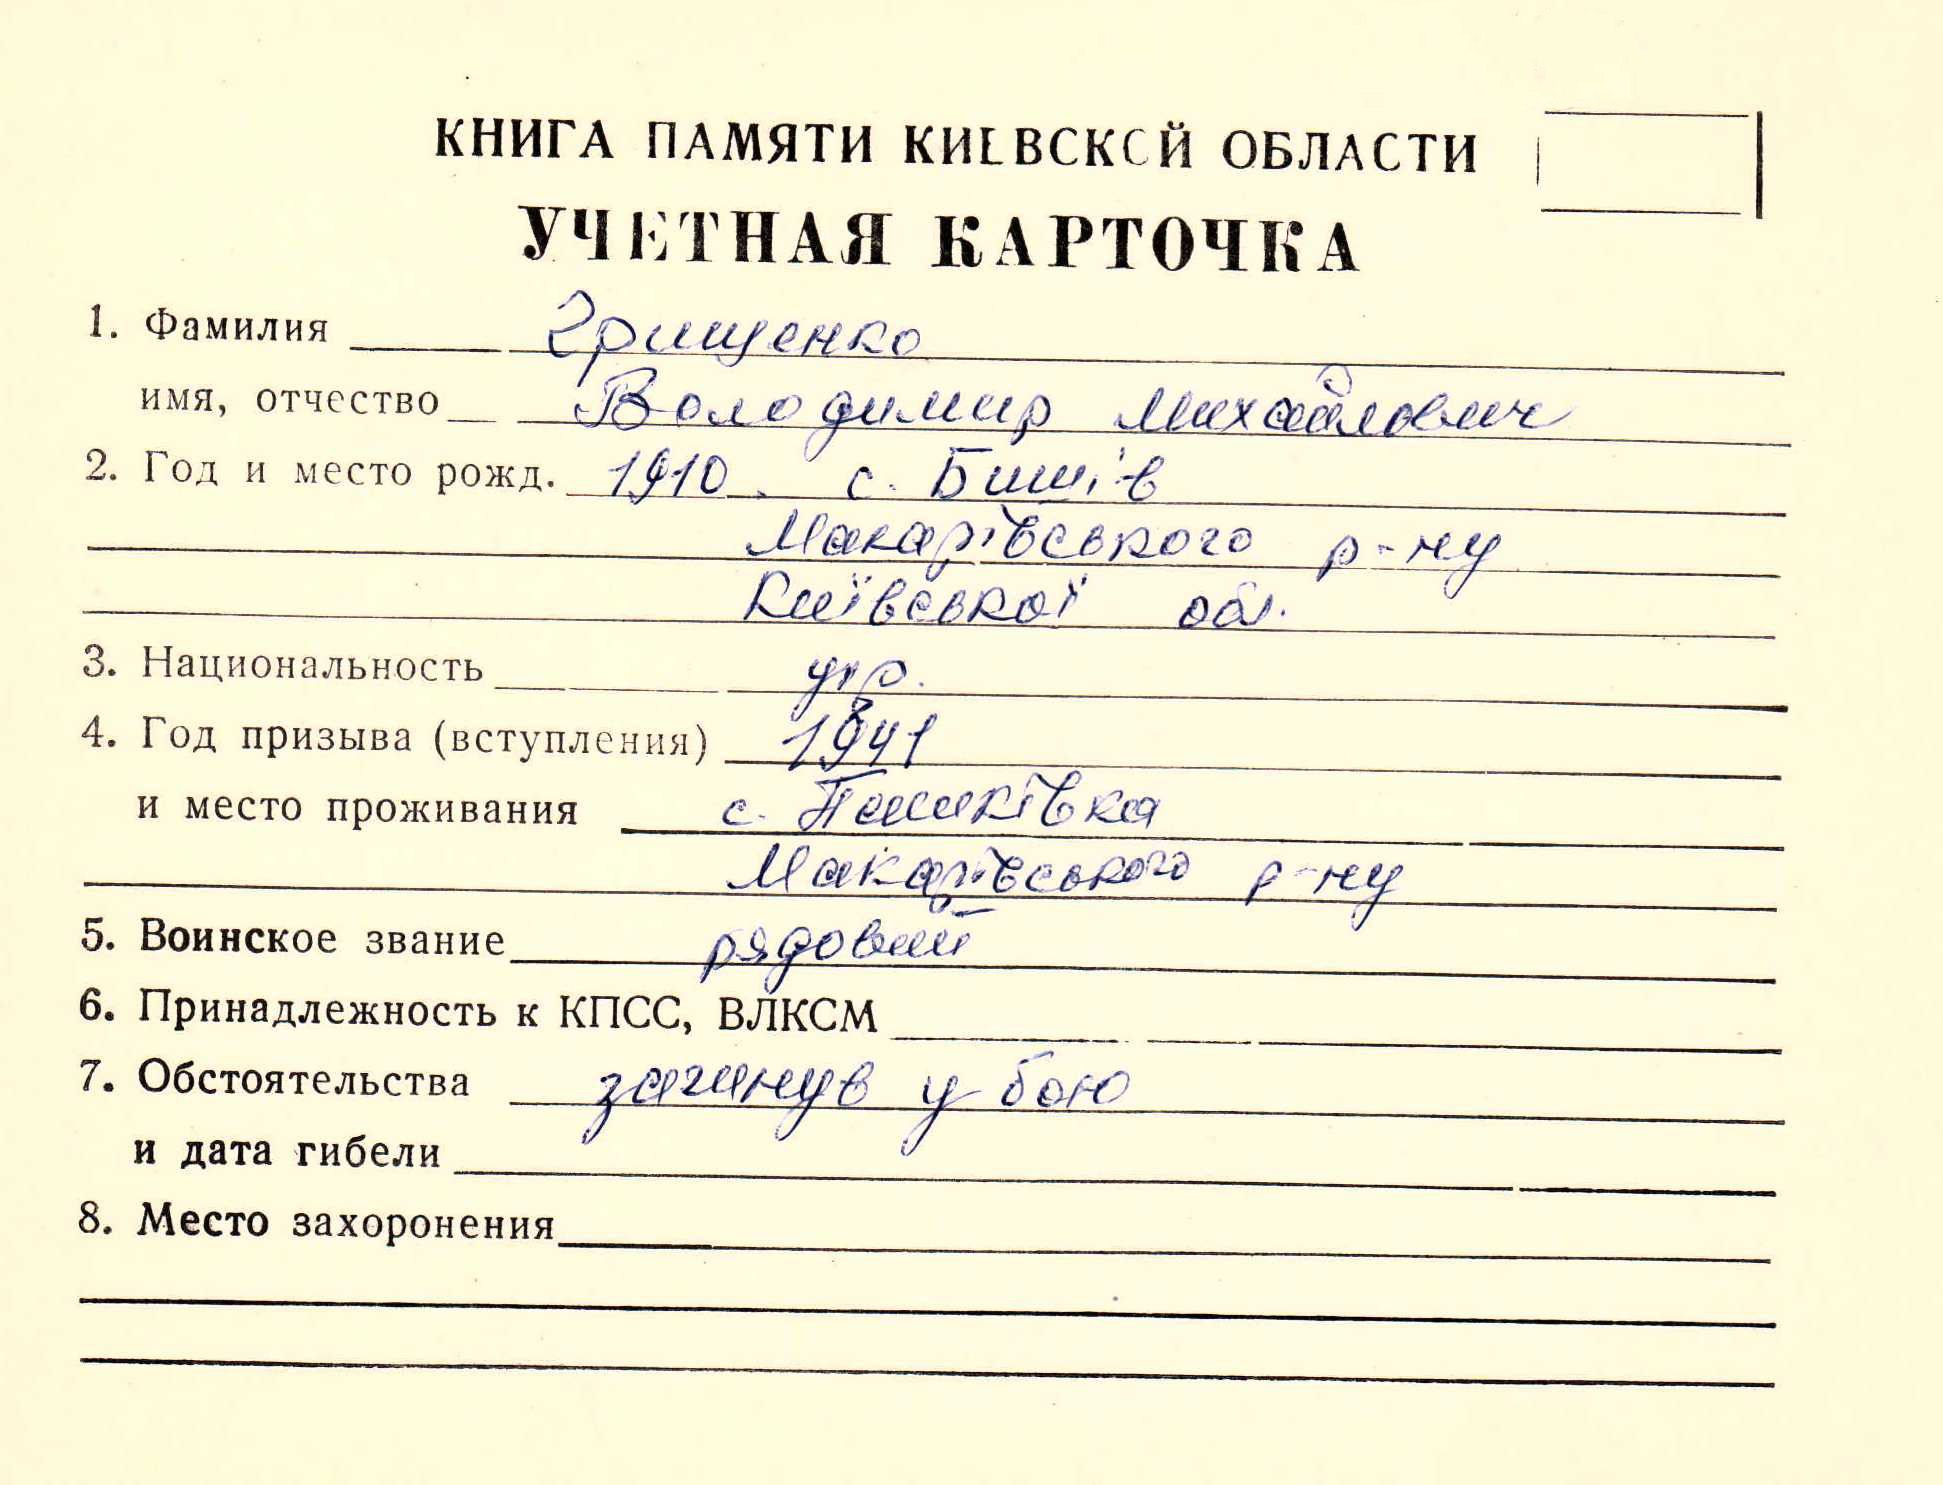 КНИГА ПАМЯТИ КИЕВСКОЙ ОБЛАСТИ
УЧЕТНАЯ КАРТОЧКА
1. Фамилия Грищенко
имя, отчество Володимир Михайлович
2. Год и место рожд. 1910. с. Бишів
Макарівського р-ну
Київської обл.
3. Национальность укр.
4. Год призыва (вступления) 1941
и место проживания с. Пашківка
Макарівського р-ну
5. Воинское звание рядовий
6. Принадлежность к КПСС, ВЛКСМ
7. Обстоятельства загинув у бою
и дата гибели
8. Место захоронения